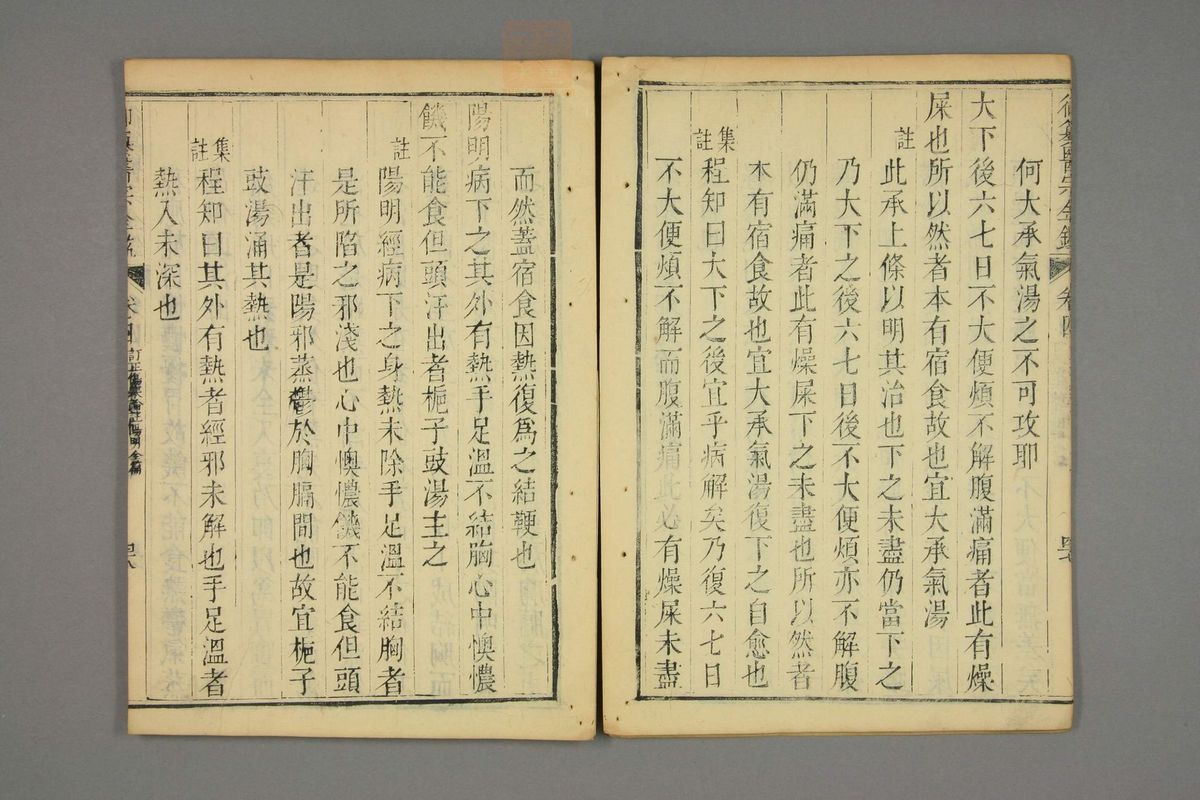 御纂醫宗金鑑 卷四
何大承氣湯之不可攻耶
大下後六七日不大便煩不解腹滿痛者此有燥
屎也所以然者本有宿食故也宜大承氣湯
註 此承上條以明其治也下之未盡仍當下之
乃大下之後六七日後不大便煩亦不解腹
仍滿痛者此有燥屎下之未盡也所以然者
本有宿食故也宜大承氣湯復下之自愈也
集註 程知曰大下之後宜乎病解矣乃復六七日
不大便煩不解而腹滿痛此必有燥屎未盡
而然蓋宿食因熱復爲之結鞕也
陽明病下之其外有熱手足溫不結胸心中懊憹
饑不能食但頭汗出者梔子豉湯主之
註 陽明經病下之身熱未除手足溫不結胸者
是所陷之邪淺也心中懊憹饑不能食但頭
汗出者是陽邪蒸鬱於胸膈間也故宜梔子
豉湯涌其熱也
集註 程知曰其外有熱者經邪未解也手足溫者
熱入未深也
卷四